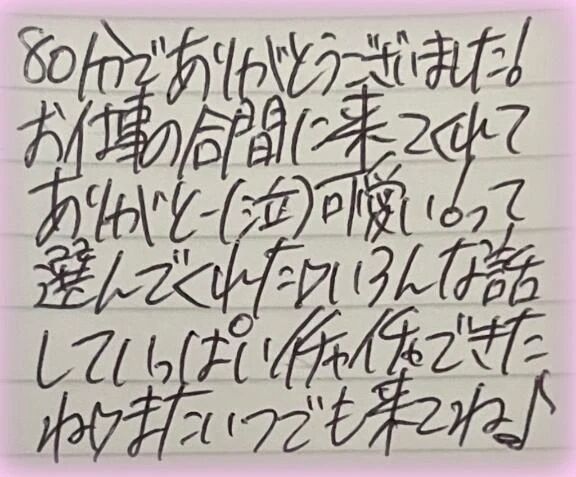 80分でありがとうございました!
お仕事の合間に来てくれて
ありがとー(泣)可愛い!って
選んでくれたりいろんな話
していっぱいイチャイチャできた
ねりまたいつでも来てね♪